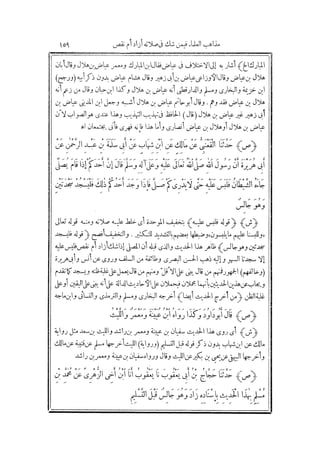 مذاهب العلماء فيمن شك فى صلاته أزاد أم نقص ١٥٩
المبارك الخ﴾ أشار به إلى الاختلاف فى عياض فقال ابن المبارك ومعمر عياض بن هلال وقال أبان
هلال بن عياض وقال الأوزاعى عياض بن أبى زهير وقال هشام عياض بدون ذكر أبيه (ورجح)
ابن خزيمة والبخارى ومسلم والدارقطنى أنه عياض بن هلال وكذا ابن حبان وقال من زعم أنه
هلال بن عياض فقد وهم. وقال أبو حاتم عياض بن هلال أشبه وجعل ابن المدينى عياض بن
أبى زهير غير عياض بن هلال (قال) الحافظ فى تهذيب التهذيب وهذا عندى هو الصواب لأن
عياض بن هلال أو هلال بن عياض أنصارى وأما هذا فإنه فهرى فأنى يجتمعان اهـ
﴿ص﴾ حَدَّثَنَا الْقَعْنَبِىُّ عَنْ مَالِكٍ عَنِ ابْنِ شِهَابٍ عَنْ أَبِى سَلَمَةَ بْنِ عَبْدِ الرَّحْمَنِ عَنْ
أَبِى هُرَيْرَةَ أَنَّ رَسُولَ اللهِ صَلَّى اللهُ تَعَالَى عَلَيْهِ وَعَلَى آلِهِ وَسَلَّمَ قَالَ إِنَّ أَحَدَكُمْ إِذَا قَامَ يُصَلِّى
جَاءَهُ الشَّيْطَانُ فَلَبَسَ عَلَيْهِ حَتَّى لَا يَدْرِى كَمْ صَلَّى فَإِذَا وَجَدَ أَحَدُكُمْ ذَلِكَ فَلْيَسْجُدْ سَجْدَتَيْنِ
وَهُوَ جَالِسٌ
﴿ش﴾ ﴿قوله فلبس عليه﴾ بتخفيف الموحدة أى خلط عليه صلاته ومنه قوله تعالى
«وللبسنا عليهم ما يلبسون» وضبطها بعضهم بالتشديد للتكثير. والتخفيف أفصح ﴿قوله فليسجد
سجدتين وهو جالس﴾ ظاهر هذا الحديث والذى قبله أن المصلى إذا شك أزاد أم نقص فليس عليه
إلا سجدتا السهو وإليه ذهب الحسن البصرى وطائفة من السلف وروى عن أنس وأبى هريرة
(وخالفهم) الجمهور فمنهم من قال يبنى على الأقل ومنهم من قال يعمل على غلبة ظنه ويسجد كما تقدم
ويجاب عن هذين الحديثين بأنهما مجملان فيحملان على الأحاديث الدالة على أنه يبنى على اليقين أو على
غلبة الظن ﴿من أخرج الحديث أيضا﴾ أخرجه البخارى ومسلم والترمذى والنسائى وابن ماجه
﴿ص﴾ قَالَ أَبُو دَاوُدَ وَكَذَا رَوَاهُ ابْنُ عُيَيْنَةَ وَمَعْمَرٌ وَاللَّيْثُ
﴿ش﴾ أى روى هذا الحديث سفيان بن عيينة ومعمر بن راشد والليث بن سعد مثل رواية
مالك عن ابن شهاب بدون ذكر قوله قبل التسليم (ورواية) الليث أخرجها مسلم عن قتيبة عن مالك
وأخرجها البيهقى عن يحيى بن بكير عن الليث وقال ورواه سفيان بن عيينة ومعمر بن راشد
﴿ص﴾ حَدَّثَنَا حَجَّاجُ بْنُ أَبِى يَعْقُوبَ نَا يَعْقُوبُ أَنَا ابْنُ أَخِى الزُّهْرِىِّ عَنْ مُحَمَّدِ بْنِ
مُسْلِمٍ بِهَذَا الْحَدِيثِ بِإِسْنَادِهِ زَادَ وَهُوَ جَالِسٌ قَبْلَ التَّسْلِيمِ